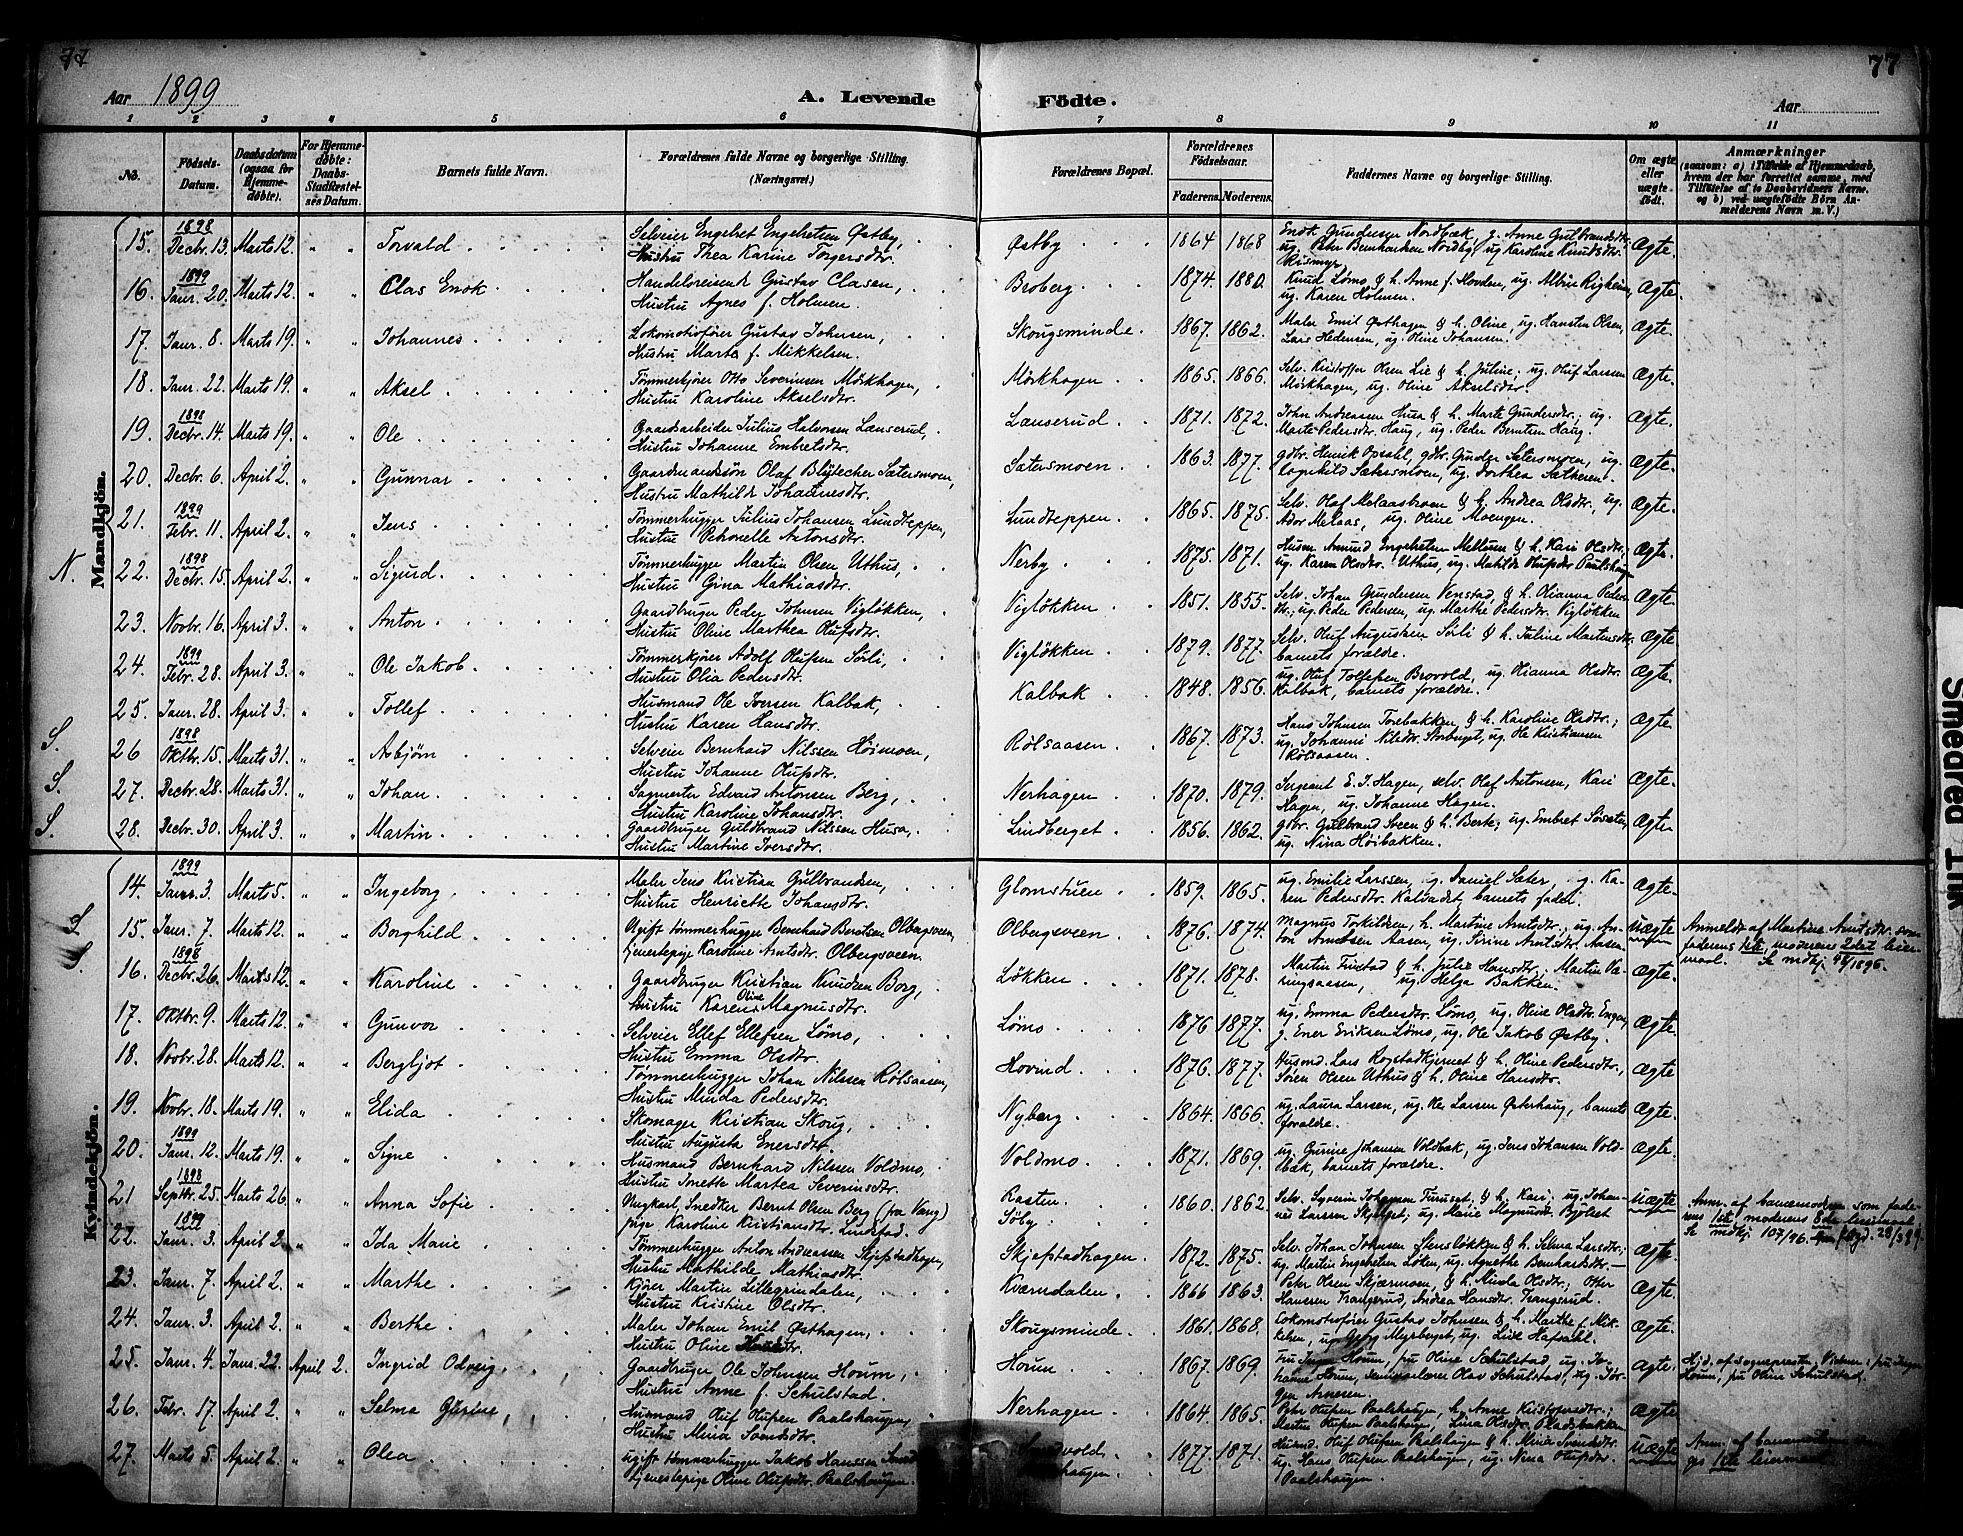 77
77
Aar 1899
A. Levende Födte.
Aar
1 2 3 4 5 6 7 8 9 10 11
No.
Födsels-Datum.
Daabsdatum (ogsaa for Hjemmedøbte).
For Hjemmedøbte: Daabs-Stadfæstelses Datum.
Barnets fulde Navn.
Forældrenes fulde Navne og borgerlige Stilling. (Næringsvei.)
Forældrenes Bopæl.
Forældrenes Fødselsaar.
Faderens. Moderens.
Faddernes Navne og borgerlige Stilling.
Om ægte eller uægte født.
Anmærkninger
(saasom: a) i Tilfælde af Hjemmedaab, hvem der har forrettet samme, med Tilføielse af to Daabsvidners Navne, og b) ved uægtefødte Börn Anmelderens Navn m. V.)
Mandkjön.
15. 1898 Decbr. 13. Marts 12. " " Torvald Selveier Engebret Engebretsen Østby, Hustru Thea Karine Torgersdtr. Østby 1864 1868 Ægte.
16. 1899 Janr. 20. Marts 12. " " Clas Enok Handelsreisende Gustav Clasen, Hustru Agnes f. Holmen. Broberg 1874. 1880. Knud Lømo & h. Anne f. Hovden, ug. Karen Holmen. Ægte.
17. Janr. 8. Marts 19. " " Johannes Lokomotivfører Gustav Johnsen, Hustru Marte f. Mikkelsen. Skougsminde. 1867. 1862. Maler Emil Østhagen & h. Oline, ug. Hansten Olsen, Lars Hedensen, ug. Oline Johansen. Ægte.
18. Janr. 22. Marts 19. " " Aksel Tømmerkjører Otto Severinsen Mörkhagen, Hustru Karoline Akselsdtr. Mörkhagen 1865. 1866. Selv. Kristoffer Olsen Lie & h. Juline; ug. Oluf Larsen Mörkhagen, ug. Oline Akselsdtr. Ægte.
19. 1898 Decbr. 14. Marts 19. " " Ole Gaardsarbeider Julius Halvorsen Lænserud, Hustru Johanne Embretsdtr. Lænserud 1871. 1872. John Andreassen Hua & h. Marte Gundersdtr.; ug. Marte Pedersdtr. Haug, ug. Peder Berntsen Haug. Ægte.
20. Decbr. 6. April 2. " " Gunnar Gaardmandssön Olaf Blystecher Sætersmoen, Hustru Mathilde Johannesdtr. Sætersmoen 1863. 1877. gdbr. Henrik Opsahl, gdbr. Gunder Sætersmoen, ug. Dorthea Sætheren. Ægte
21. 1899 Febr. 11. April 2. " " Jens Tømmerhugger Julius Johansen Lundteppen, Hustru Petronelle Antonsdtr. Lundteppen 1865. 1875. Selv. Olaf Melaasbroen & h. Andrea Olsdtr, ug. Ador Melaas, ug. Oline Moengen. Ægte.
N. 22. 1898 Decbr. 15. April 2. " " Sigurd. Tømmerhugger Martin Olsen Uthus Hustru Gina Mathiasdtr. Nerby 1875. 1871. Husm. Amund Engebretsen Mellum & h. Kari Olsdtr.; ug. Karen Olsdtr. Uthus, ug. Matilde Olufsdtr Paulshaug Ægte.
23. Novbr. 16. April 3. " " Anton Gaardbruger Peder Johnsen Vigløkken, Hustru Oline Marthea Olufsdtr. Vigløkken 1851. 1855. Selv. Johan Gundersen Venstad, & h. Olianna Pedersdtr; ug. Peder Pedersen, ug. Marthe Pedersdtr. Vigløkken Ægte.
24. 1899 Febr. 28. April 3. " " Ole Jakob Tømmerkjører Adolf Olufsen Sörli, Hustru Olia Pedersdtr. Vigløkken 1879. 1877. Selv. Oluf Augustsen Sörli & h. Juline Martinsdtr, barnets forældre. Ægte
25. Janr. 28. April 3. " " Tollef Husmand Ole Iversen Kalbak, Hustru Karen Hansdtr. Kalbak 1848. 1856. ug. Oluf Tollefsen Brovold, ug. Hianna Olsdtr. Kalbak, barnets forældre. Ægte.
S. 26 1898 Oktbr. 15. Marts 31. " " Asbjörn Selveier Bernhard Nilssen Höimoen, Hustru Johanne Olufsdtr. Rølsaasen 1867. 1873. Hans Johnsen Torebakken, & h. Karoline Olsdtr.; ug. Ole Kristiansen Rølsaasen. Ægte.
S. 27. Decbr. 28. Marts 31. " " Johan Sagmester Edvard Antonsen Berg, Hustru Karoline Johansdtr. Nerhagen 1870. 1879. Sergeant E. J. Hagen, selv. Olaf Antonsen, Kari Hagen, ug. Johanne Hagen. Ægte.
S. 28. Decbr. 30. April 3. " " Martin Gaardbruger Guldbrand Nilssen Husa, Hustru Martine Iversdtr. Lindberget 1856. 1862. gdbr. Gulbrand Sveen & h. Berte; ug. Embret Søsæter, ug. Nina Höibakken. Ægte
Kvindekjön.
14. 1899 Janr. 3. Marts 5. " " Ingeborg Maler Jens Kristian Gulbrandsen, Hustru Henriette Johansdtr. Glomstuen 1859. 1865. ug. Emilie Larssen, ug. Daniel Sæter, ug. Karen Pedersdtr. Kaldadet, barnets fader. Ægte.
S. 15. Janr. 7. Marts 12. " " Borghild Ugift tømmerhugger Bernhard Berntsen Olbergsveen, tjenestepige Karoline Arntsdtr. Olbergsveen. Olbergsveen 1876. 1874. Magnus Torkildsen, h. Martine Arntsdtr; ug. Anton Arnesen Aasen, ug. Tirine Arntsdtr. Aasen. Uægte Anmeldt af Martine Arntsdtr. som faderens 1ste, moderens 2det leiermaal. Se mdkj. 98/1896.
S. 16. 1898 Decbr. 26. Marts 12. " " Karoline Gaardbruger Kristian Knudsen Borg, Hustru Karen Oline Magnusdtr. Løkken 1871. 1878. Martin Fristad & h. Julie Hansdtr. ug. Helga Bakken. Ægte.
17. Oktbr. 9. Marts 12. " " Gunvor Selveier Ellef Ellefsen Lömo, Hustru Emma Olsdtr. Lömo 1876 1877. ug. Emma Pedersdtr. Lömo, ug. Oline Olsdtr. Engen, g. Ener Eriksen Lömo, ug. Ole Jakob Østby. Ægte.
18. Novbr. 28. Marts 12. " " Bergljot Tømmerhugger Johan Nilssen Rølsaasen, Hustru Minda Pedersdtr. Hovind 1876. 1877. Husmd. Lars Rogstadkjernet & h. Oline Pedersdtr., Søren Olsen Uthus & h. Oline Hansdtr. Ægte
19. Novbr. 18. Marts 19. " " Elida Skomager Kristian Skoug, Hustru Augusta Enersdtr. Nyberg 1864. 1866. ug. Laura Larsen, ug. Ole Larsen Østerhaug, barnets forældre. Ægte.
20. 1899 Janr. 12. Marts 19. " " Signe Husmand Bernhard Nilssen Voldmo, Hustru Jonette Martea Severinsdtr. Voldmo 1871. 1869. ug. Gurine Johansen Voldbak, ug. Jens Johansen Voldbæk, barnets forældre. Ægte.
21 1898 Septbr. 25. Marts 26. " " Anna Sofie Ungkarl, Snedker Bernt Olsen Berg (fra Vang) pige Karoline Kristiansdtr. Lindstad. Rasten. Söby 1860. 1862. Selv. Syverin Johansen Tunset, & h. Kari; ug. Johannes Larssen Skjefset; ug. Marie Magnusdtr Bjölset Uægte Anm. af barnemoderen som faderens 1ste, moderens 2de leiermaal. Se mdkj. 107/96.
22. 1899 Janr. 3. April 2. " " Ida Marie Tømmerhugger Anton Andreassen Skjefstadhagen, Hustru Mathilde Mathiasdtr. Skjefstadhagen 1872. 1875. Selv. Johan Johansen Stensløkken & h. Selma Larsdtr.; ug. Martin Engebretsen Løten, ug. Agnethe Bernhardsdtr. Ægte.
23. Janr. 7. April 2. " " Marthe Kjører Martin Lillegrindalen, Hustru Kristine Olsdtr. Kværndalen 1866 1863. Peter Olsen Skjærmoen, & h. Minda Olsdtr; Otter Hanssen Trangsrud, Andrea Hansdtr. Trangsrud. Ægte.
24. Janr. 3. April 2. " " Berthe Maler Johan Emil Østhagen, Hustru Oline Skougsminde 1861. 1868. Lokomotivfører Gustav Johnsen & h. Marthe f. Mikkelsen, ug. Georg Myrberget, ug. Lise Hafsahl. Ægte.
25. Janr. 4. Janr. 22. April 2. Ingrid Odveig Gaardbruger Ole Johnsen Horum, Hustru Anne f. Schulstad. Horum 1867. 1869. fru Inga Horum, fru Oline Schulstad, ug. Johanne Horum, Olav Schulstad, ug. Jörgen Arnesen. Ægte. Hjd. af sogneprest Vidnr: fru Inga Horum, fru Oline Schulstad.
26. Febr. 17. April 2. " " Selma Gustine Husmand Oluf Olufsen Paalshaugen, Hustru Mina Svendsdtr. Nerhagen 1864. 1865. Peter Olufsen Paalshaugen, h. Anne Kristofersdtr.; Martin Olufsen Paalshaugen, Lina Olsdtr. Pladsbakken Ægte
27. Marts 5. April 2. " " Olea ugift tømmerhugger Jakob Hanssen tjenestepige Oline Olufsdtr. Paalshaugen. 1877. 1871. Husmd. Oluf Olufsen Paalshaugen & h. Mina Svendsdtr. ug. Hans Olufsen Paalshaugen, ug. Nina Olufsdtr. Paalshaugen Uægte Anm. af barne 1ste leiermaal
Smeared Ink